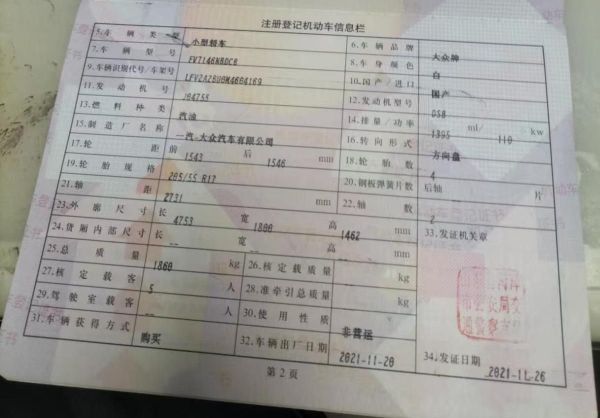 注册登记机动车信息栏
5.车辆类型 小型轿车 6.车辆品牌 大众牌
7.车辆型号 FV7146NBDCB 8.车身颜色 白
9.车辆识别代号/车架号 10.国产/进口 国产
11.发动机号 J64755 12.发动机型号
13.燃料种类 汽油 14.排量/功率 1395 ml/ 110 kw
15.制造厂名称 一汽-大众汽车有限公司 16.转向形式 方向盘
17.轮距 前 1543 后 1546 mm 18.轮胎数 4
19.轮胎规格 205/55 R17 20.钢板弹簧片数 后轴 -- 片
21.轴距 2731 mm 22.轴数 2
23.外廓尺寸 长 4753 宽 1800 高 1462 mm 33.发证机关章
24.货厢内部尺寸 长 -- 宽 -- 高 -- mm
25.总质量 1860 kg 26.核定载质量 -- kg
27.核定载客 5 人 28.准牵引总质量 -- kg
29.驾驶室载客 -- 人 30.使用性质 非营运
31.车辆获得方式 购买 32.车辆出厂日期 2021-11-20 34.发证日期 2021-11-26
第2页